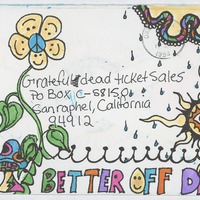 Grateful dead ticket Sales
Po Box C-S8150
San raphel, California
94912
BETTER OFF D